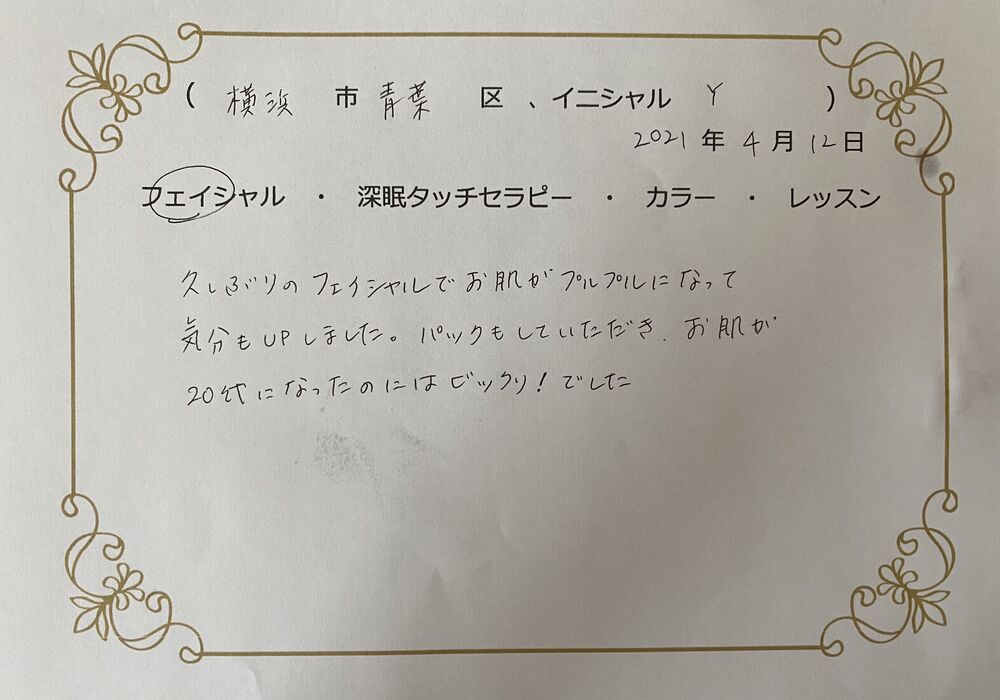 ( 横浜 市 青葉 区 、イニシャル Y )
2021 年 4 月 12 日
フェイシャル ・ 深眠タッチセラピー ・ カラー ・ レッスン
久しぶりのフェイシャルでお肌がプルプルになって
気分もUPしました。パックもしていただき、お肌が
20代になったのにはビックリ!でした